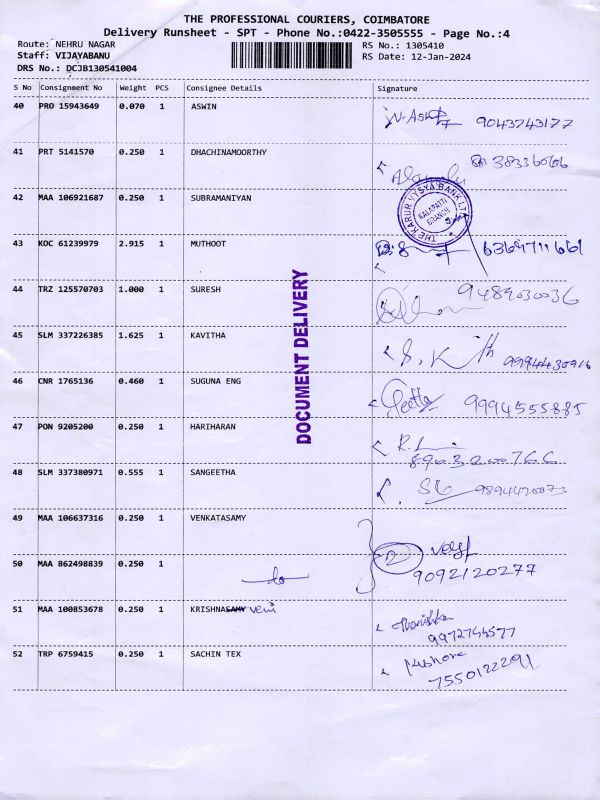 THE PROFESSIONAL COURIERS, COIMBATORE
Delivery Runsheet - SPT - Phone No.:0422-3505555 - Page No.:4
Route: NEHRU NAGAR RS No.: 1305410
Staff: VIJAYABANU RS Date: 12-Jan-2024
DRS No.: DCJB130541004
S No Consignment No Weight PCS Consignee Details Signature
40 PRO 15943649 0.070 1 ASWIN 9043743177
41 PRT 5141570 0.250 1 DHACHINAMOORTHY 38336066
42 MAA 106921687 0.250 1 SUBRAMANIYAN
THE KARUR VYSYA BANK LTD
KALAPATTI
BRANCH
43 KOC 61239979 2.915 1 MUTHOOT 6369711661
44 TRZ 125570703 1.000 1 SURESH 9489030036
45 SLM 337226385 1.625 1 KAVITHA
46 CNR 1765136 0.460 1 SUGUNA ENG Geetha 9994555885
47 PON 9205200 0.250 1 HARIHARAN 8903200766
48 SLM 337380971 0.555 1 SANGEETHA 9894420073
49 MAA 106637316 0.250 1 VENKATASAMY
50 MAA 862498839 0.250 1 2 9092120277
51 MAA 100853678 0.250 1 KRISHNASAMY veni
9972744577
52 TRP 6759415 0.250 1 SACHIN TEX
7550122291
DOCUMENT DELIVERY